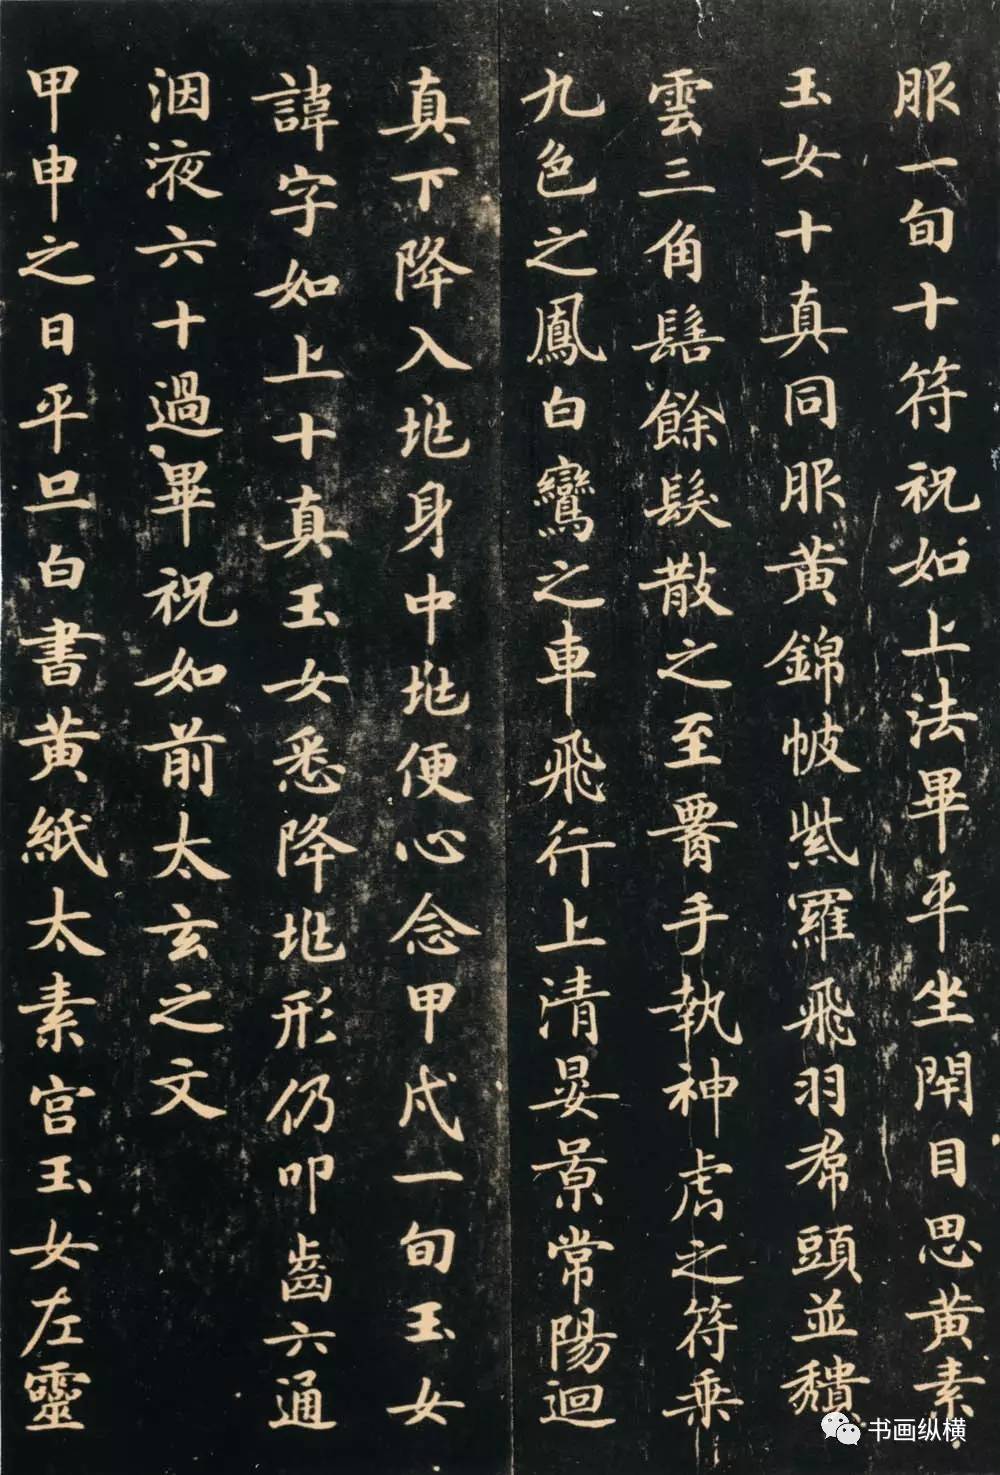 服一旬十符祝如上法畢平坐閇目思黄素
玉女十真同服黄錦帔紫羅飛羽帬頭並穨
雲三角髻餘髮散之至署手執神虎之符乗
九色之鳳白鸞之車飛行上清晏景常陽迴
真下降入坵身中坵便心念甲戌一旬玉女
諱字如上十真玉女悉降坵形仍叩齒六通
洇液六十過畢祝如前太玄之文
甲申之日平旦白書黄紙太素宫玉女左靈
书画纵横